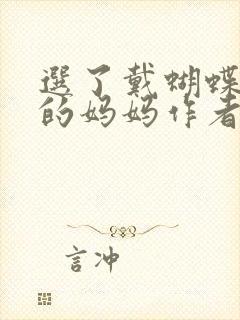 選了戴蝴蝶
的妈妈作者
言冲